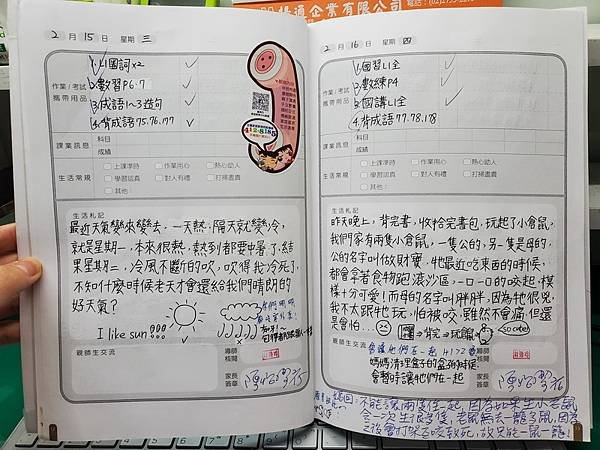 企業有限公司
2月15日 星期三
作業/考試
攜帶用品
1.L1國詞x2
2.數習P6、7
3.成語1~3造句
4.背成語75.76.77
課業訊息
科目
成績
生活常規
上課準時 作業用心 熱心助人
學習認真 對人有禮 打掃盡責
其他:
生活札記
最近天氣變來變去,一天熱,隔天就變冷,
就是星期一,本來很熱,熱到都要中暑了,結
果星期二,冷風不斷的吹,吹得我冷死了,
不知什麼時候老天才會還給我們晴朗的
好天氣?
I like sun!!!
親師生交流
導師
核閱
家長
簽章
2月16日 星期四
作業/考試
攜帶用品
1.國習L1全
2.數練P4
3.國講L1全
4.背成語77.78.18
課業訊息
科目
成績
生活常規
上課準時 作業用心 熱心助人
學習認真 對人有禮 打掃盡責
其他:
生活札記
昨天晚上,背完書,收拾完書包,玩起了小倉鼠,
我們家有兩隻小倉鼠,一隻公的,另一隻是母的,
公的名字叫做財寶,牠最近吃東西的時候,
都會拿著食物跑滾沙區,一口一口的咬起,模
樣十分可愛!而母的名字叫胖胖,因為牠很兇,
我不太跟牠玩,怕被咬,雖然不會痛,但還
是會怕…
背完→玩鼠
so cute!
親師生交流
會讓他們在一起
媽媽清理盒子的
會暫時讓牠們在一起
導師
核閱
家長
簽章
不能讓兩隻住一起,因為如果生小老鼠
會一次生很多隻,老鼠無法一籠多鼠,因為
之後會打架互咬致死,故只能一鼠一籠!